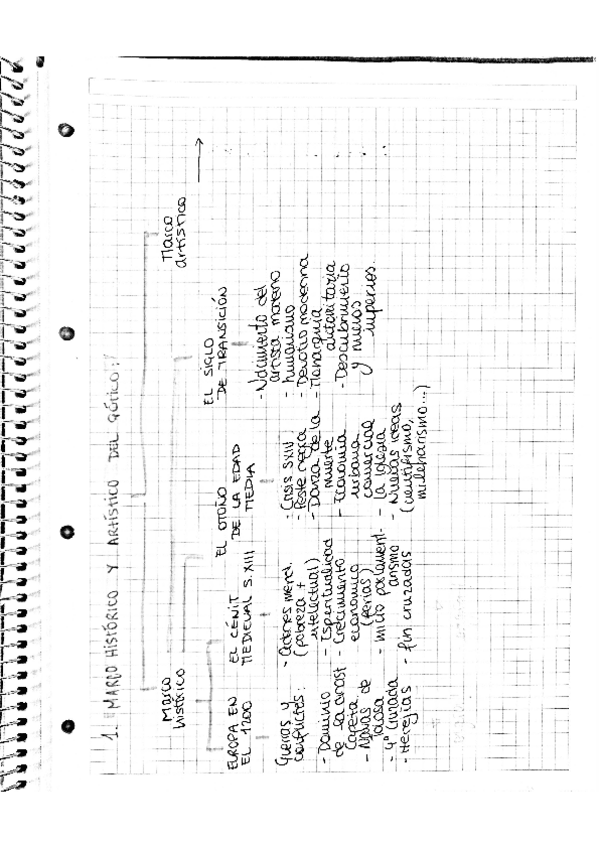 1. MARCO HISTÓRICO Y ARTÍSTICO DEL GÓTICO:
Marco
histórico
Marco
artístico
EUROPA EN
EL 1200
Guerras y
conflictos:
- Dominio
de la dinast
Capeta
- Navas de
Tolosa
- 4ª Cruzada
- Herejías
EL CÉNIT
MEDIEVAL S. XIII
- Órdenes mend.
(pobreza +
intelectual)
- Espiritualidad
- Crecimiento
económico
(ferias)
- inicio parlament-
arismo
- fin cruzadas
EL OTOÑO
DE LA EDAD
MEDIA
- Crisis SXIV
- Peste negra
- Danza de la
muerte
- Economía
urbana
comercial
- La iglesia
- Nuevas ideas
(cientifismo,
milenarismo...)
EL SIGLO
DE TRANSICIÓN
- Nacimiento del
artista moderno
- humanismo
- Devotio moderna
- Monarquía
autoritaria
- Descubrimiento
y nuevos
imperios.